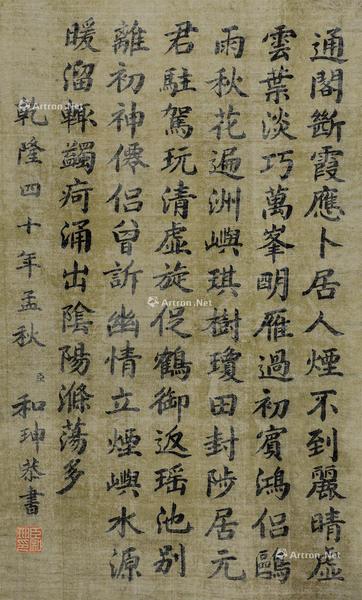 通閣斷霞應卜居人煙不到麗晴虛
雲葉淡巧萬峯明雁過初賓鴻侶鷗
雨秋花遍洲嶼琪樹瓊田封陟居元
君駐駕玩清虛旋促鶴御返瑤池別
離初神僊侶曾訴幽情立煙嶼水源
暖溜轍蠲痾涌出陰陽滌蕩多
乾隆四十年孟秋 臣 和珅恭書
Artron.Net
Artron.Net
Artron.Net
Artron.Net
Artron.Net